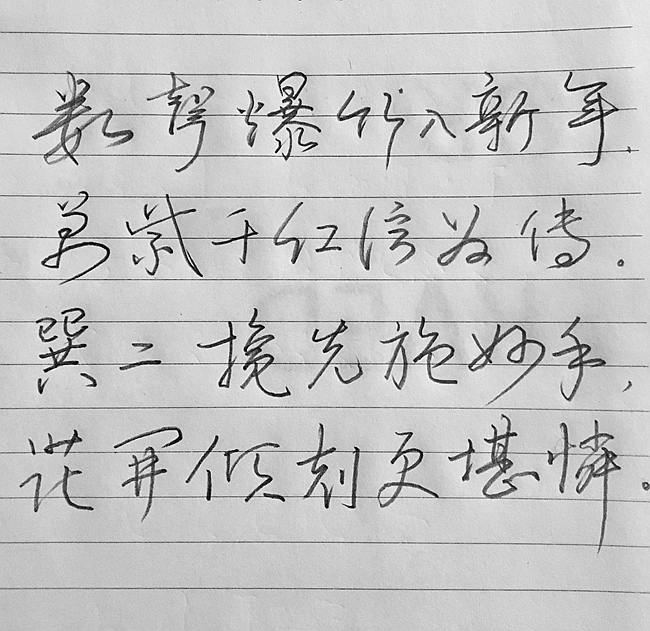 数聲爆竹入新年，
万紫千红信为传。
巽二搀先施妙手，
花開倾刻更堪憐。